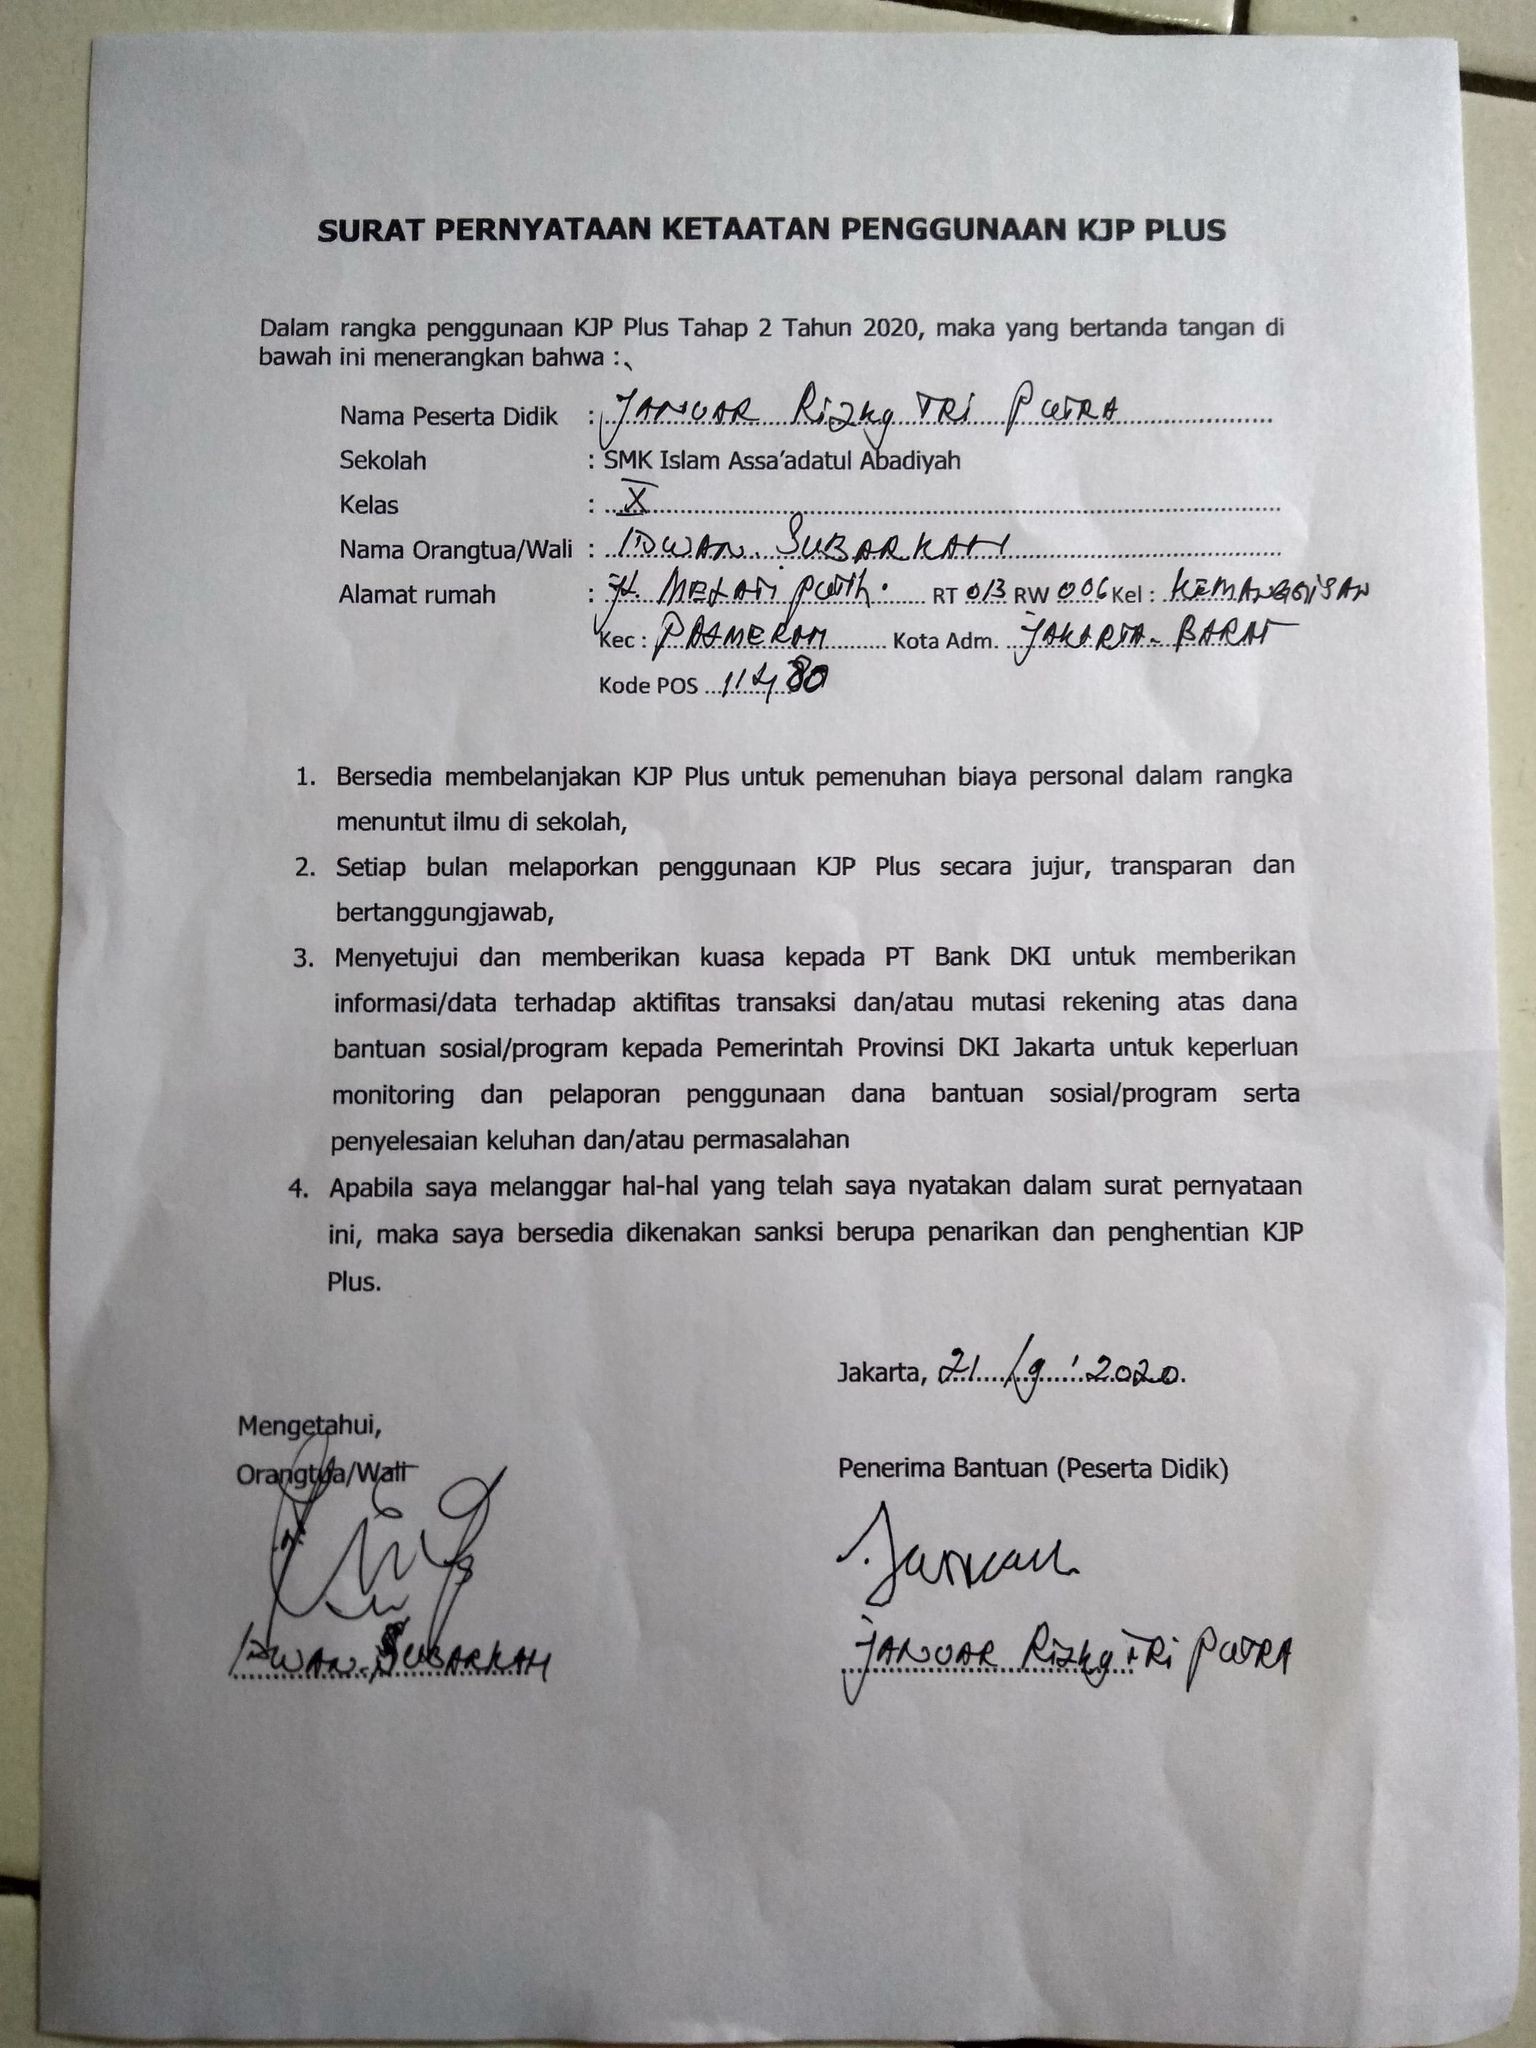 SURAT PERNYATAAN KETAATAN PENGGUNAAN KJP PLUS
Dalam rangka penggunaan KJP Plus Tahap 2 Tahun 2020, maka yang bertanda tangan di
bawah ini menerangkan bahwa :
Nama Peserta Didik : JANUAR Rizky TRI PUTRA
Sekolah : SMK Islam Assa'adatul Abadiyah
Kelas : X
Nama Orangtua/Wali : IDWAN SUBARKAH
Alamat rumah : Jl. MELATI Putih. RT 013 RW 006 Kel : KEMANGGISAN
Kec : PALMERAH Kota Adm. JAKARTA - BARAT
Kode POS 11480
1. Bersedia membelanjakan KJP Plus untuk pemenuhan biaya personal dalam rangka
menuntut ilmu di sekolah,
2. Setiap bulan melaporkan penggunaan KJP Plus secara jujur, transparan dan
bertanggungjawab,
3. Menyetujui dan memberikan kuasa kepada PT Bank DKI untuk memberikan
informasi/data terhadap aktifitas transaksi dan/atau mutasi rekening atas dana
bantuan sosial/program kepada Pemerintah Provinsi DKI Jakarta untuk keperluan
monitoring dan pelaporan penggunaan dana bantuan sosial/program serta
penyelesaian keluhan dan/atau permasalahan
4. Apabila saya melanggar hal-hal yang telah saya nyatakan dalam surat pernyataan
ini, maka saya bersedia dikenakan sanksi berupa penarikan dan penghentian KJP
Plus.
Jakarta, 21/9/2020.
Mengetahui,
Orangtua/Wali Penerima Bantuan (Peserta Didik)
IDWAN SUBARKAH JANUAR Rizky TRI PUTRA